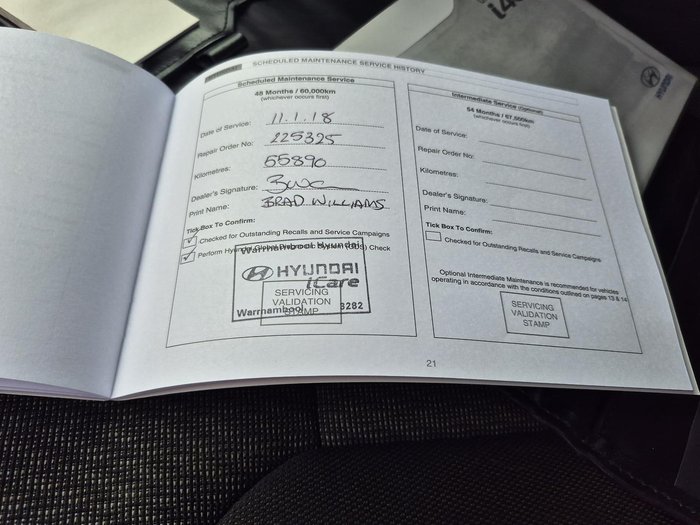 i40
HYUNDAI
SCHEDULED MAINTENANCE SERVICE HISTORY
Scheduled Maintenance Service
48 Months / 60,000km
(whichever occurs first)
Date of Service: 11.1.18
Repair Order No: 225325
Kilometres: 55890
Dealer's Signature:
Print Name: BRAD WILLIAMS
Tick Box To Confirm:
Checked for Outstanding Recalls and Service Campaigns
Perform Hyundai Global Diagnostic System (GDS) Check
Warrnambool Hyundai
HYUNDAI
iCare
SERVICING
VALIDATION
STAMP
Warrnambool 3282
Intermediate Service (Optional)
54 Months / 67,500km
(whichever occurs first)
Date of Service:
Repair Order No:
Kilometres:
Dealer's Signature:
Print Name:
Tick Box To Confirm:
Checked for Outstanding Recalls and Service Campaigns
Optional Intermediate Maintenance is recommended for vehicles
operating in accordance with the conditions outlined on pages 13 & 14
SERVICING
VALIDATION
STAMP
21